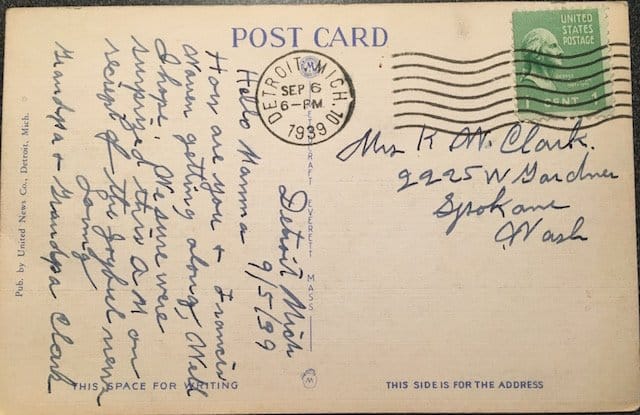 POST CARD
UNITED
STATES
POSTAGE
1 CENT 1
DETROIT, MICH. 10
SEP 6
6-PM
1939
Detroit Mich
9/5/39
Hello Mamma
How are you + Francis
Waren getting along, Well
I hope. We sure were
surprized this A M on
receipt of the Joyful news
Loving
Grandpa + Grandpa Clark
Mrs K W. Clark.
2225 W Gardner
Spokane
Wash
EVERETT MASS
Pub. by United News Co., Detroit, Mich.
THIS SPACE FOR WRITING
THIS SIDE IS FOR THE ADDRESS